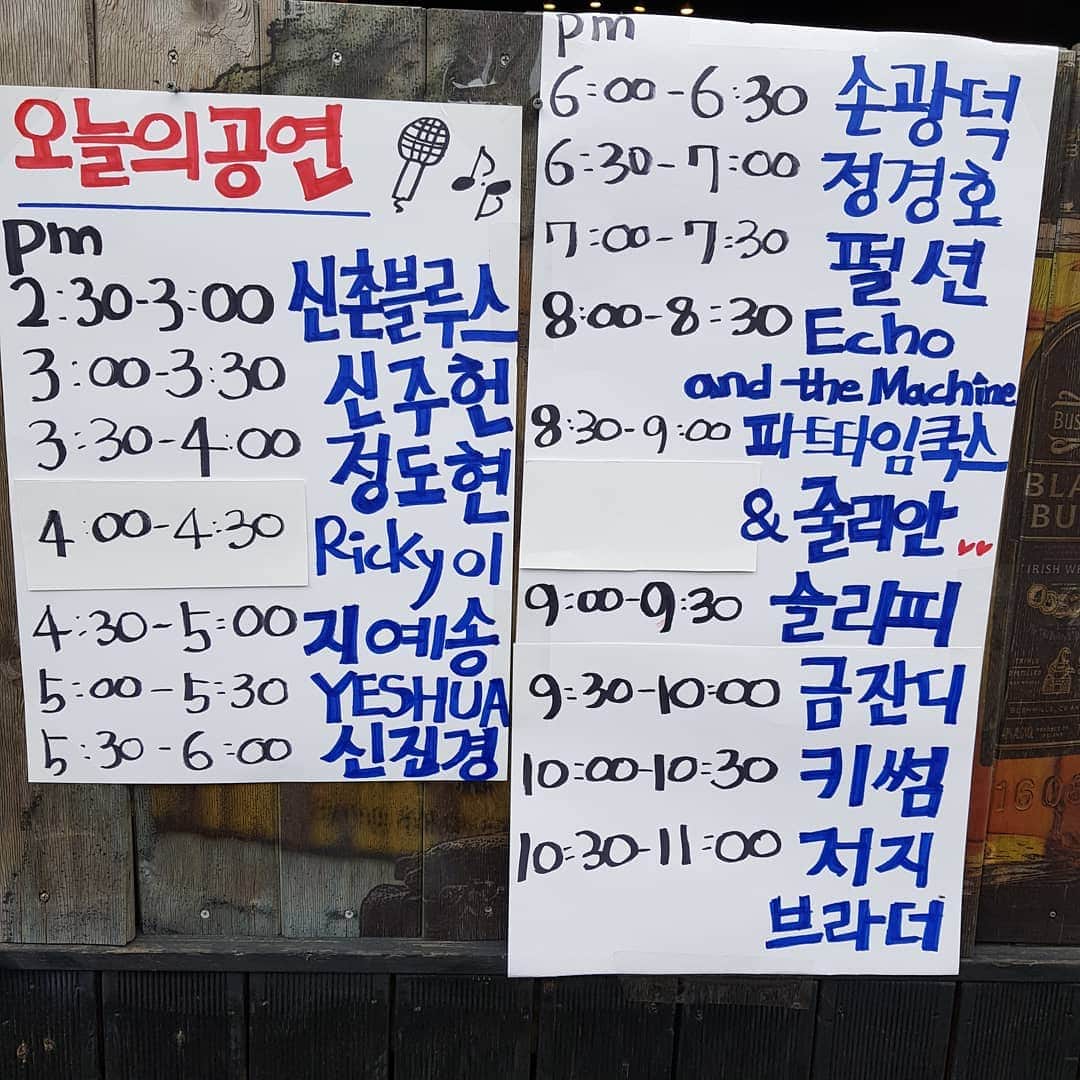 오늘의공연
pm
2:30-3:00 신촌블루스
3:00-3:30 신주헌
3:30-4:00 정도현
4:00-4:30 Ricky이
4:30-5:00 지예송
5:00-5:30 YESHUA
5:30-6:00 신진경
pm
6:00-6:30 손광덕
6:30-7:00 정경호
7:00-7:30 펄션
8:00-8:30 Echo
and the Machine
8:30-9:00 파트타임쿡스
& 줄리안
9:00-9:30 슬리피
9:30-10:00 금잔디
10:00-10:30 키썸
10:30-11:00 저지
브라더
BUS
BLA
BU
IRISH WH
1608